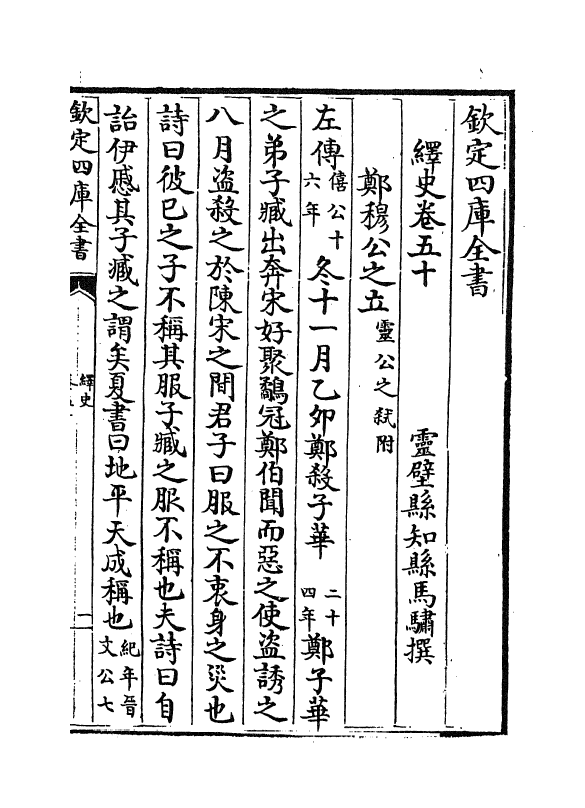 欽定四庫全書
繹史卷五十
靈壁縣知縣馬驌撰
鄭穆公之立靈公之弑附
左傳僖公十六年冬十一月乙卯鄭殺子華二十四年鄭子華
之弟子臧出奔宋好聚鷸冠鄭伯聞而惡之使盜誘之
八月盜殺之於陳宋之間君子曰服之不衷身之災也
詩曰彼已之子不稱其服子臧之服不稱也夫詩曰自
詒伊慼其子臧之謂矣夏書曰地平天成稱也紀年晉文公七
欽定四庫全書
繹史
一